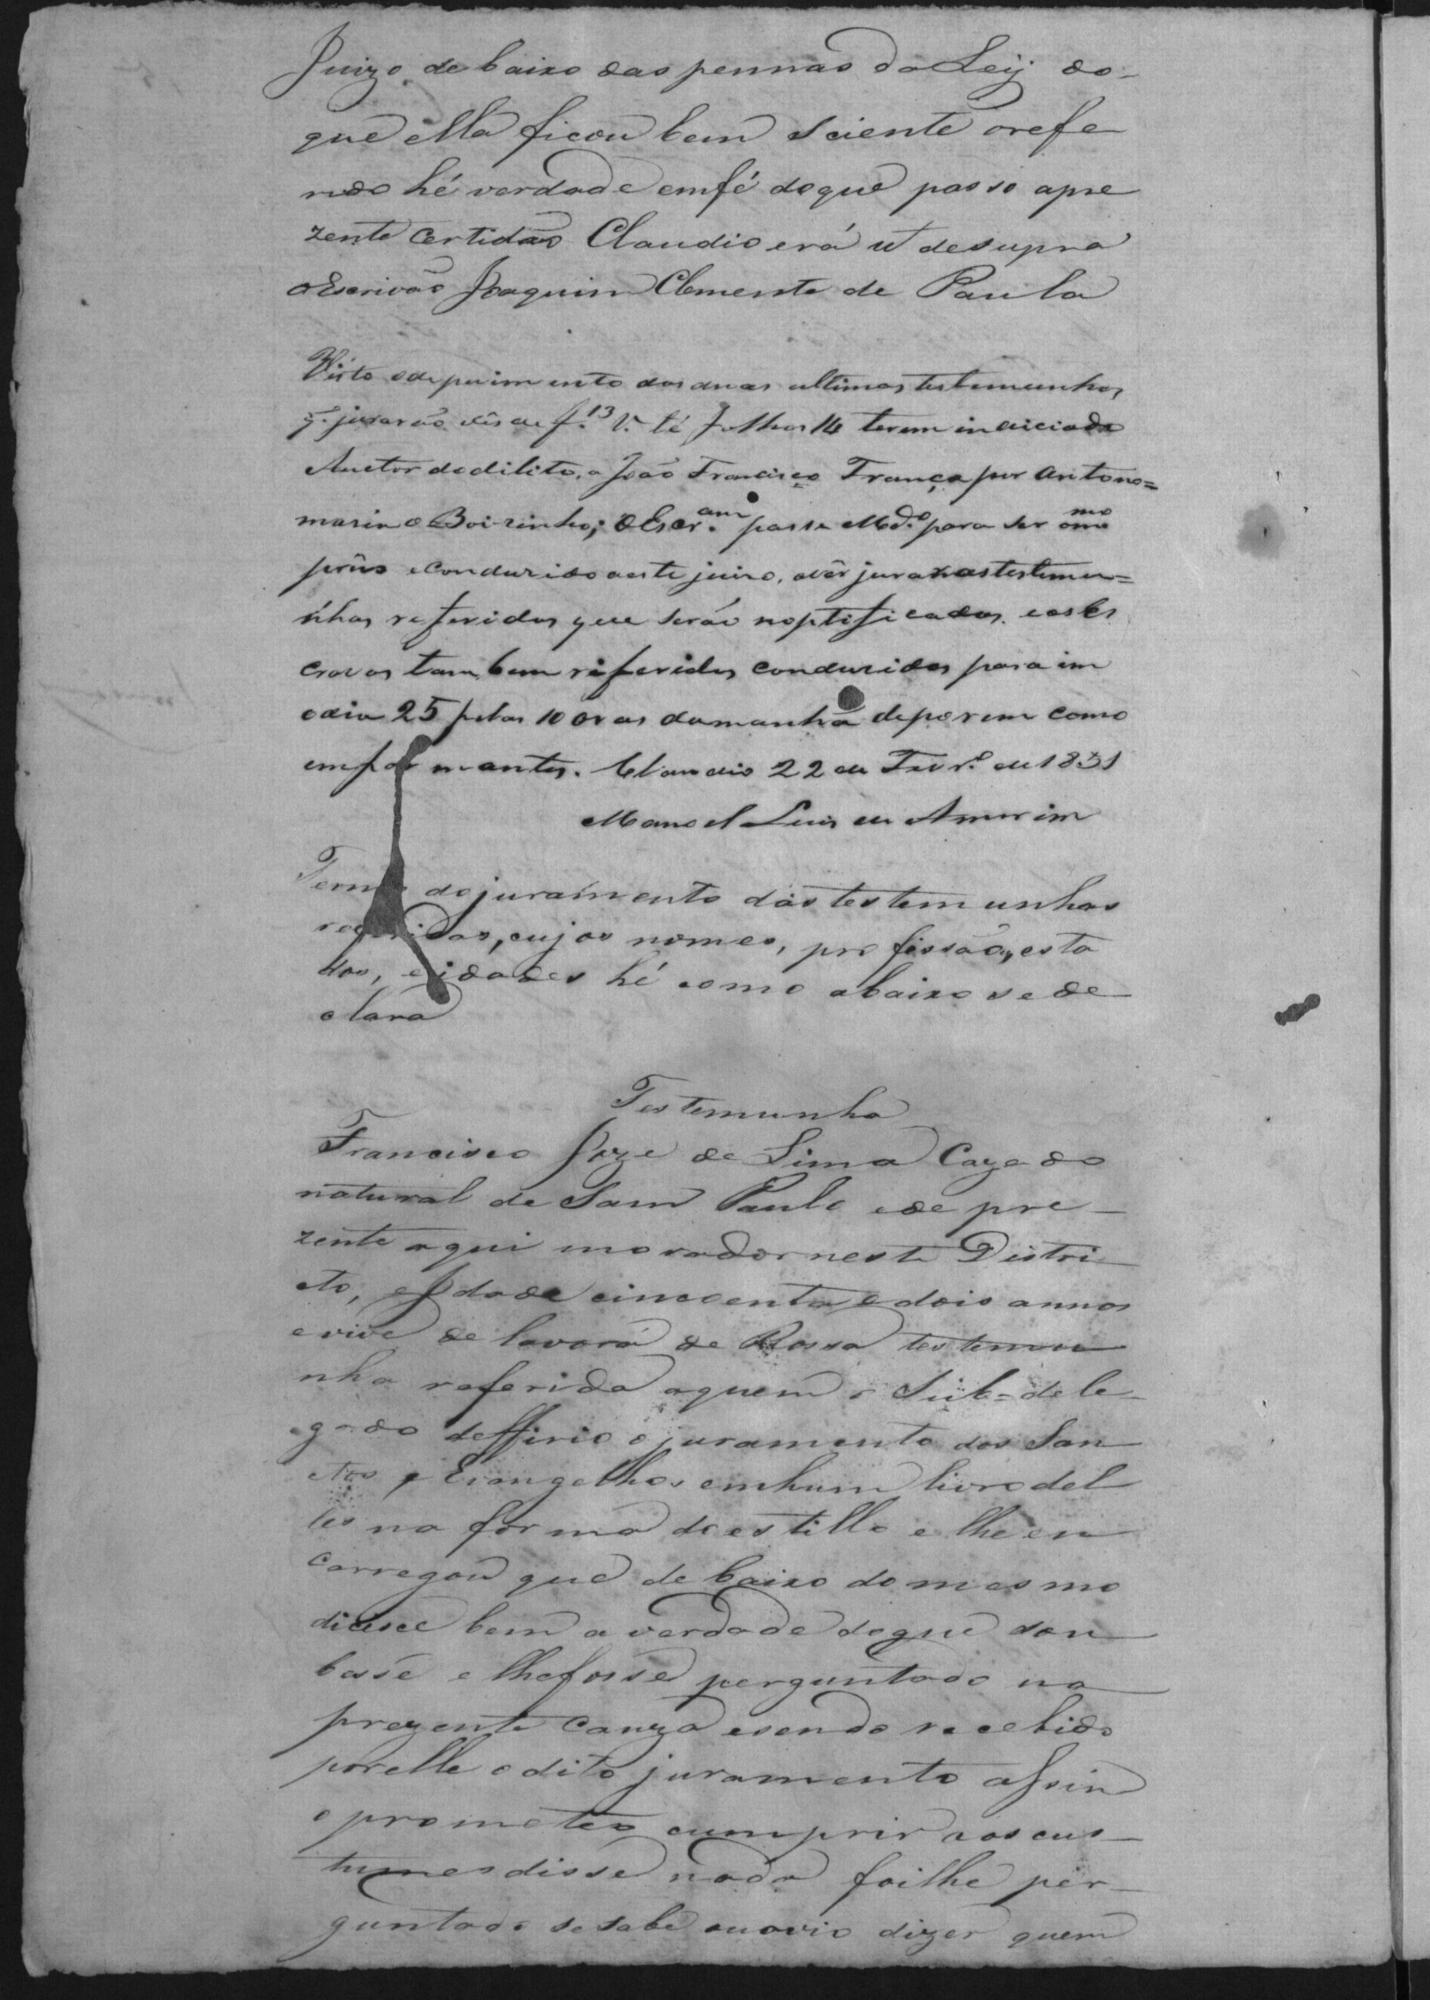 Juizo de baixo das pennas da Leij do-
que ella ficou bem sciente o refe
rido hé verdade em fé do que passo apre
zente certidão Claudio erá ut de supra
o Escrivão Joaquim Clemente de Paula
Visto o depuimento das duas ultimas testemunhas,
q. jurarão dês de f. 13 V. té folhas 14 terem indiciado
Auctor do dilito, a João Francisco França por antono=
masia o Boizinho; o Escr.am passe Md.o para ser o mmo
prêzo e conduzido a este juizo, a vêr jurar as testemu=
nhas referidas que serão noptificadas, e os Es
cravos tambem referidos conduzidos para im
o dia 25 pelas 10 oras da manhã deporem como
emformantes. Claudio 22 de Fevr.o de 1851
Manoel Luis de Amorim
Termo do juramento das testemunhas
referidas, cujos nomes, profissão, esta
dos, e idades hé como abaixo se de
clara
Testemunha
Francisco Joze de Lima Cazado
natural de Sam Paulo e de pre-
zente aqui morador neste Distri
cto, e Idade cincoenta e dois annos
e vive de lavora de Rossa testemu
nha referida aquem o Sub=dele-
gado deffirio o juramento dos San
ctos Evangelhos em hum livro del
les na forma do estillo e lhe en
carregou que de baixo do mesmo
dicesce bem a verdade do que sou
besse e lhe fosse perguntado na
prezente Cauza e sendo recebido
por elle o dito juramento assim
o prometteo cumprir e aos cus-
tumes disse nada foilhe per-
guntado se sabe ou ovio dizer quem